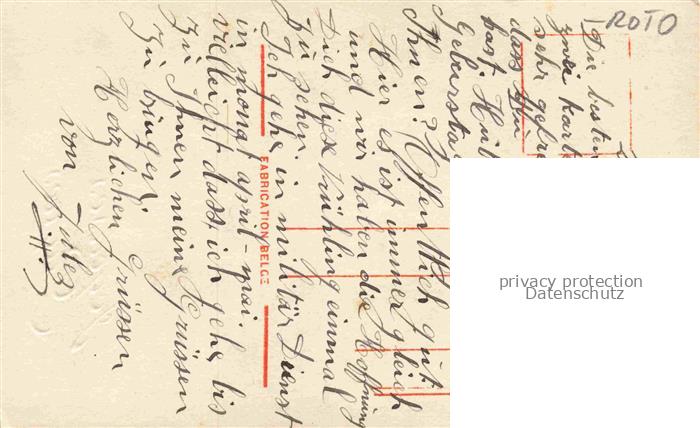 ROTO
Die besten
zwei kart
sehr gefre
dass
Geburtsta
hast. Hut
Ihnen? Offentlich gut.
Hier es ist immer gleich
und wir haben die Hoffnung
Dich diese Frühling einmal
zu sehen.
Ich gehe in militär Dienst
in monat april-mai.
vielleicht dass ich gehe bis
zu Ihnen meine Grüssen
zu bringen.
Herzlichen Grüssen
von Jules
FABRICATION BELGE
privacy protection
Datenschutz